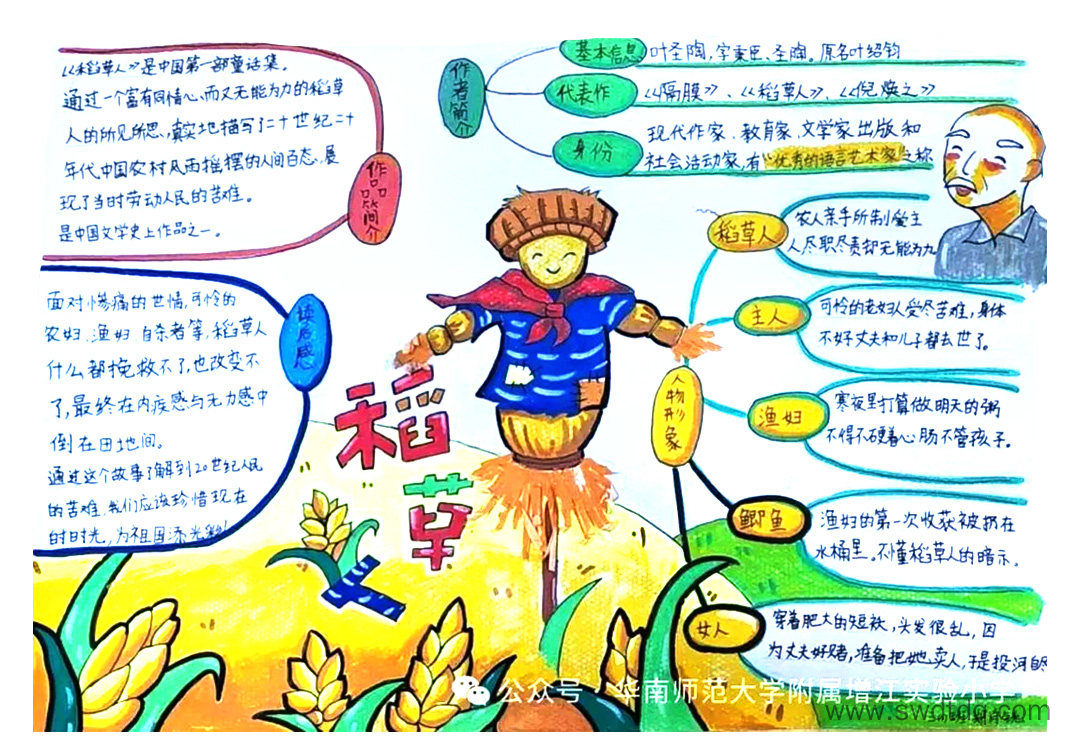 《稻草人》是中国第一部童话集。
通过一个富有同情心,而又无能为力的稻草
人的所见所思,真实地描写了二十世纪二十
年代中国农村风雨摇摆的人间百态,展
现了当时劳动人民的苦难。
是中国文学史上作品之一。
作品简介
面对惨痛的世情,可怜的
农妇、渔妇、自杀者等,稻草人
什么都挽救不了,也改变不
了,最终在内疚感与无力感中
倒在田地间。
通过这个故事了解到20世纪人民
的苦难,我们应该珍惜现在
时时光,为祖国添光彩
读后感
稻
草
人
作者简介
基本信息
叶圣陶,字秉臣、圣陶。原名叶绍钧
代表作
《隔膜》、《稻草人》、《倪焕之》
身份
现代作家、教育家、文学家出版和
社会活动家,有“优秀的语言艺术家”之称
人物形象
稻草人
农人亲手所制,爱主
人尽职尽责却无能为力
主人
可怜的老妇人受尽苦难,身体
不好丈夫和儿子都去世了。
渔妇
寒夜里打算做明天的粥
不得不硬着心肠不管孩子。
鲫鱼
渔妇的第一次收获被扔在
水桶里。不懂稻草人的暗示。
女人
穿着肥大的短袄,头发很乱,因
为丈夫好赌,准备把她卖人,于是投河自尽
公众号·华南师范大学附属增江实验小学
www.swdtdq.com